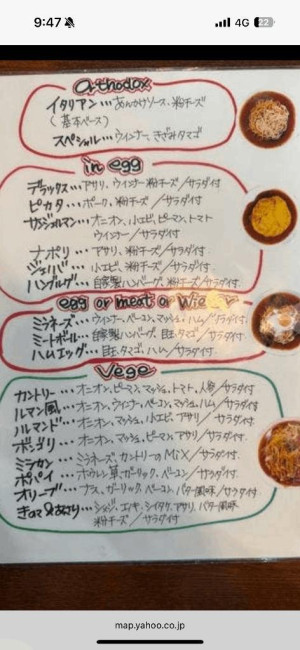 9:47
4G 22
Orthodox
イタリアン…あんかけソース、粉チーズ
(基本ベース)
スペシャル…ウインナー、きざみタマゴ
in egg
デラックス…アサリ、ウインナー、粉チーズ／サラダ付
ピカタ…ポーク、粉チーズ／サラダ付
オニオン、小エビ、ピーマン、トマト
ウインナー／サラダ付
ナポリ…アサリ、粉チーズ／サラダ付
小エビ、粉チーズ／サラダ付
ハンブルグ…自家製ハンバーグ、粉チーズ／サラダ付
egg or meat or Wie
ミラネーズ…ウインナー、ベーコン、マッシュ、ハム／サラダ付
ミートボール…自家製ハンバーグ、目玉、タマゴ／サラダ付
ハムエッグ…目玉、タマゴ、ハム／サラダ付
Vege
カントリー…オニオン、ピーマン、マッシュ、トマト、人参／サラダ付
ルマン風…オニオン、ウインナー、ベーコン、マッシュ、ハム／サラダ付
ルマンド…オニオン、マッシュ、小エビ、アサリ／サラダ付
ボンゴリ…オニオン、マッシュ、ピーマン、アサリ／サラダ付
ミラカン…ミラネーズ、カントリーのMIX／サラダ付
ポパイ…ホウレン草、ガーリック、ベーコン／サラダ付
オリーブ…ナス、ガーリック、ベーコン、バター風味／サラダ付
シメジ、エノキ、シイタケ、アサリ、バター風味
粉チーズ／サラダ付
map.yahoo.co.jp